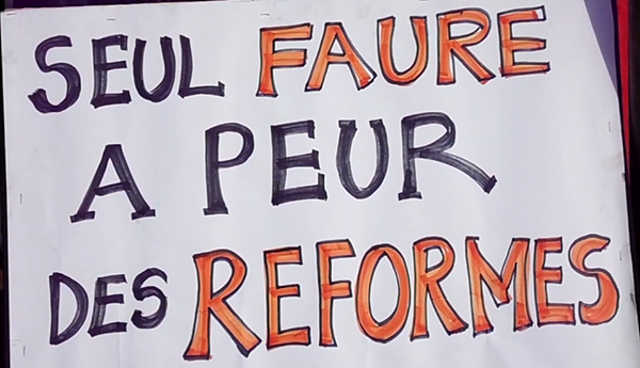 SEUL FAURE
A PEUR
DES REFORMES